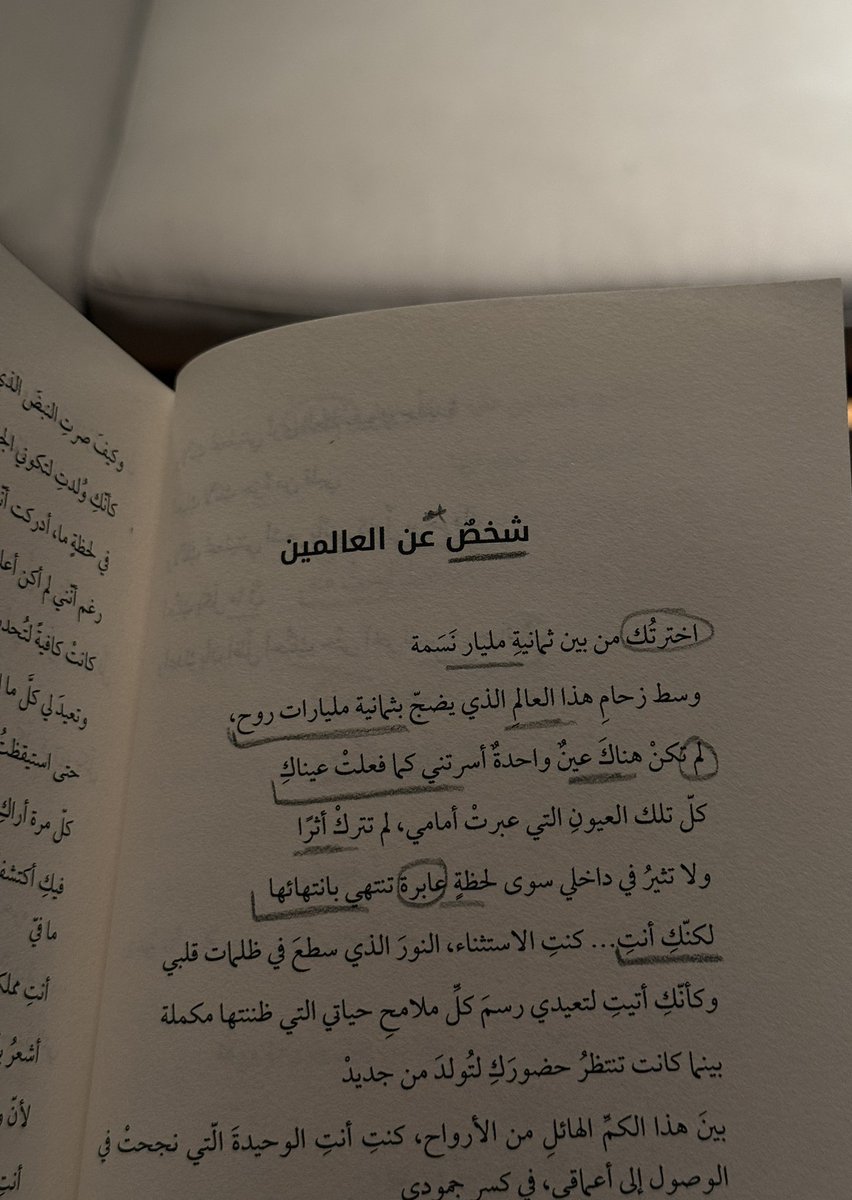 شخصٌ عن العالمين
اخترتُك من بين ثمانيةِ مليار نَسَمة
وسط زحامِ هذا العالمِ الذي يضجّ بثمانية مليارات روح،
لم تكنْ هناكَ عينٌ واحدةٌ أسرتني كما فعلتْ عيناكِ
كلّ تلك العيونِ التي عبرتْ أمامي، لم تتركْ أثرًا
ولا تثيرُ في داخلي سوى لحظةٍ عابرة تنتهي بانتهائها
لكنّكِ أنتِ... كنتِ الاستثناء، النورَ الذي سطعَ في ظلمات قلبي
وكأنّكِ أتيتِ لتعيدي رسمَ كلِّ ملامحِ حياتي التي ظننتها مكملة
بينما كانت تنتظرُ حضورَكِ لتُولدَ من جديدْ
بينَ هذا الكمِّ الهائلِ من الأرواح، كنتِ أنتِ الوحيدةَ الّتي نجحتْ في
الوصول إلى أعماقي، في كسر جمودي
وكيفَ صرتِ النبضَ الذي
كأنّكِ وُلدتِ لتكوني
في لحظةٍ ما، أدركت
رغم أنّني لم أكن
كانتْ كافيةً
وتعيدَ لي كلَّ ما
حتى استيقظتُ
كلّ مرة أراكِ
فيكِ أكتشف
ما فيّ
أنتِ
أشعرُ
لأنّ
أنتِ